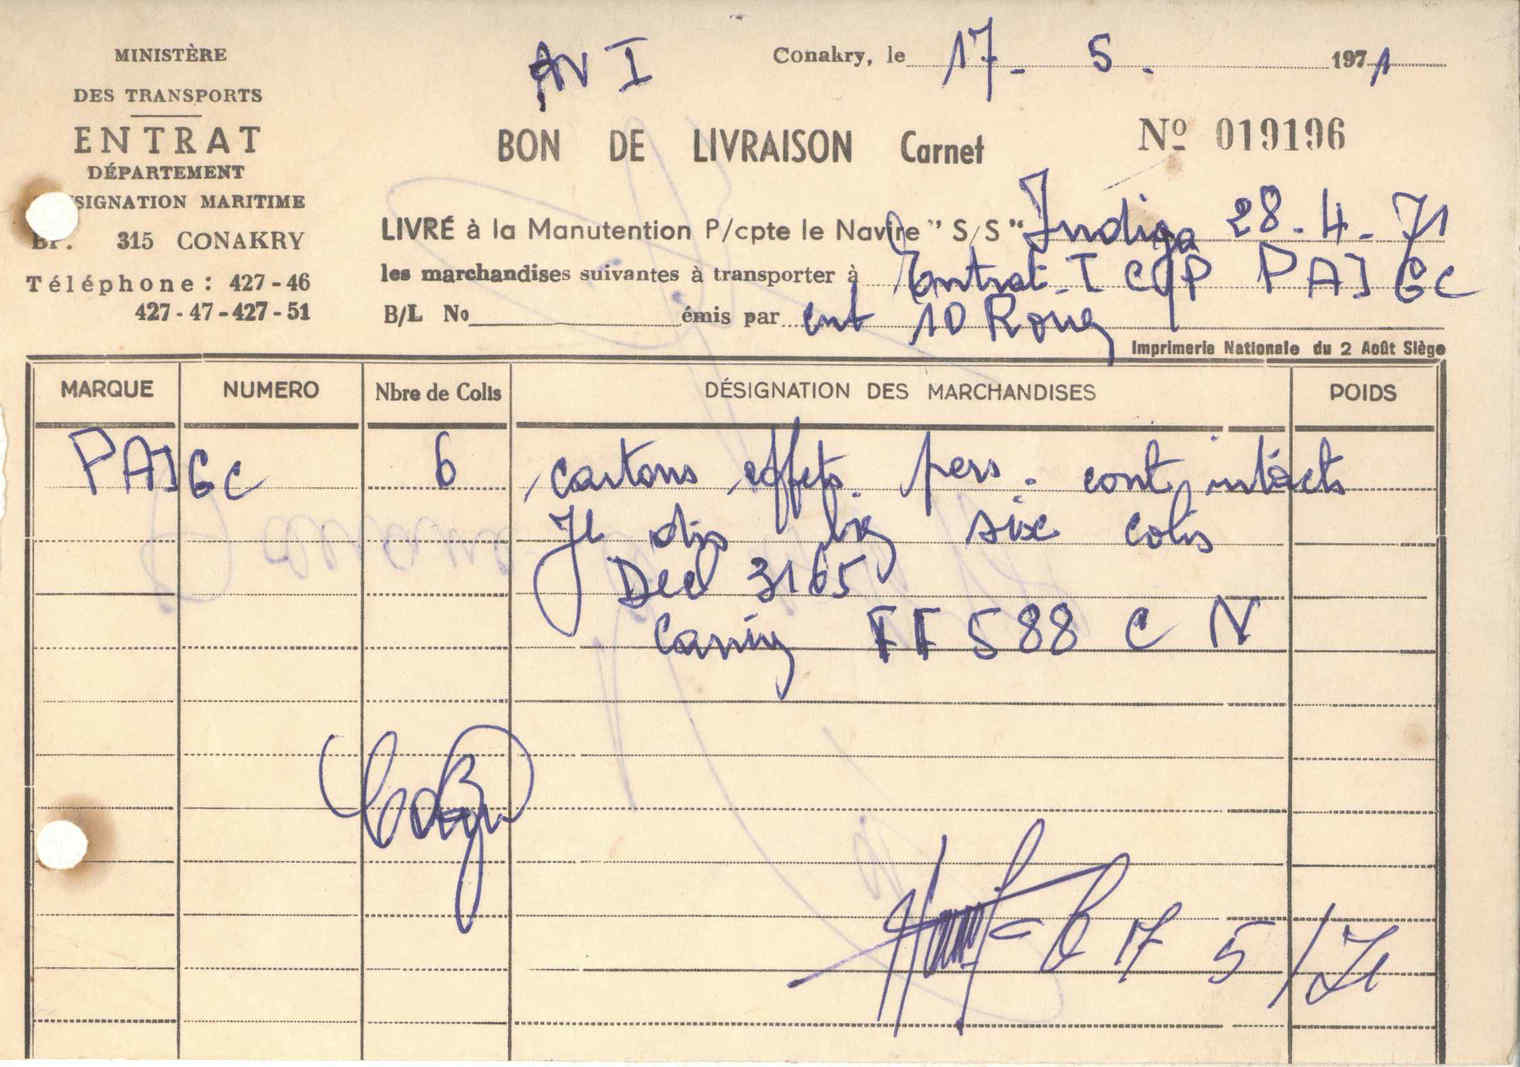 MINISTÈRE
DES TRANSPORTS
ENTRAT
DÉPARTEMENT
SIGNATION MARITIME
BP. 315 CONAKRY
Téléphone : 427-46
427-47-427-51
AV I
Conakry, le 17 - 5 - 1971
BON DE LIVRAISON Carnet
Nº 019196
LIVRÉ à la Manutention P/cpte le Navire " S/S " Indiga 28-4-71
les marchandises suivantes à transporter à Entrat-I COP PAIGC
B/L No émis par ent 10 Roug
Imprimerie Nationale du 2 Août Siège
MARQUE NUMERO Nbre de Colis DÉSIGNATION DES MARCHANDISES POIDS
PAIGC 6 cartons effets. pers. cont intacts
Je dis six colis
Dec 3165
FF 588 C N
17 5/71